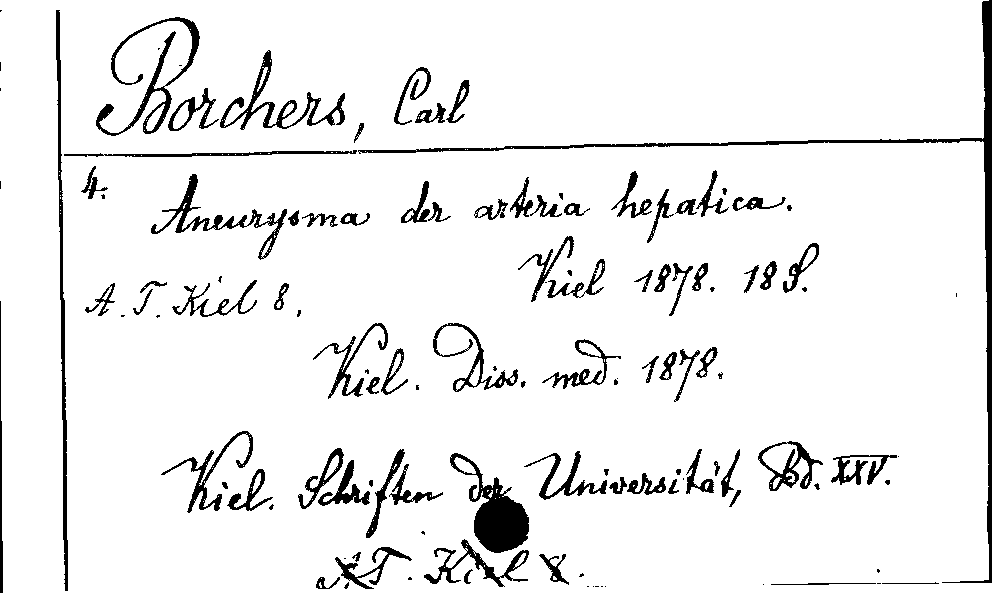 Borchers, Carl
4.
Aneurysma der arteria hepatica.
Kiel 1878. 18 S.
A. T. Kiel 8.
Kiel. Diss. med. 1878.
Kiel. Schriften der Universität, Bd. XXV.
A. T. Kiel 8.